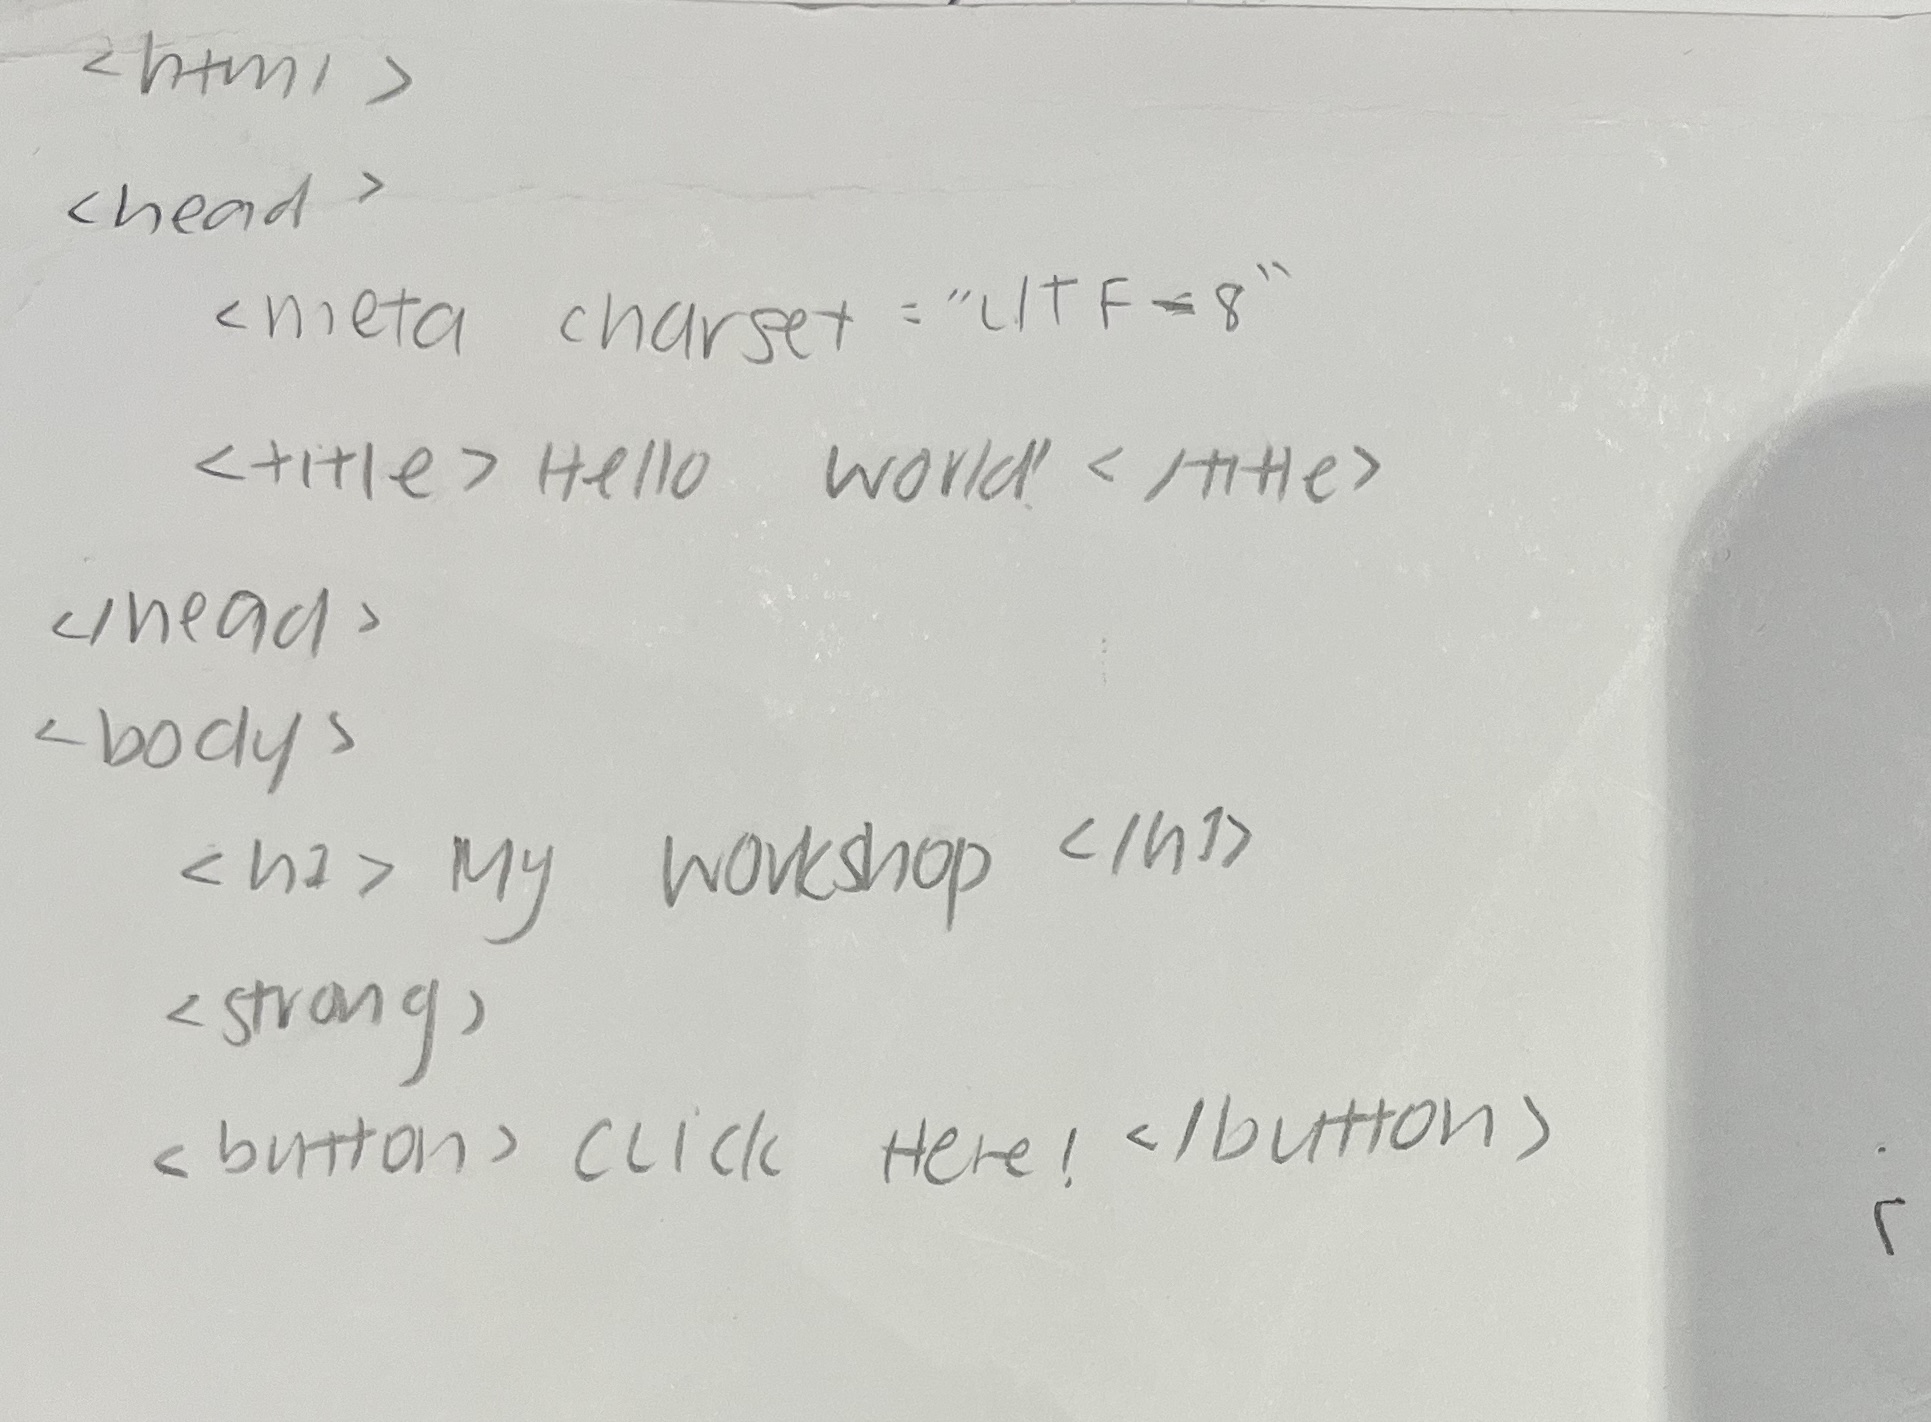 <html>
<head>
<meta charset="UTF-8"
<title>Hello world!</title>
</head>
<body>
<h1> My workshop </h1>
<strong>
<button> Click Here! </button>